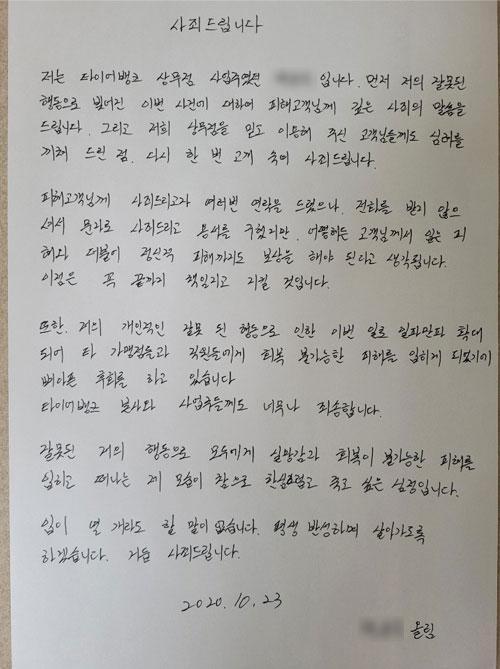 사죄드립니다
저는 타이어뱅크 상무점 사업주였던 입니다. 먼저 저의 잘못된
행동으로 빚어진 이번 사건에 대하여 피해고객님께 깊은 사죄의 말씀을
드립니다. 그리고 저희 상무점을 믿고 이용해 주신 고객님들께도 심려를
끼쳐 드린 점, 다시 한 번 고개 숙여 사죄드립니다.
피해고객님께 사죄드리고자 여러번 연락을 드렸으나, 전화를 받지 않으
셔서 문자로 사죄드리고 용서를 구했지만, 어떻하든 고객님께서 입은 피
해와 더불어 정신적 피해까지도 보상을 해야 된다고 생각됩니다.
이점은 꼭 끝까지 책임지고 지킬 것입니다.
또한, 저의 개인적인 잘못 된 행동으로 인한 이번 일로 일파만파 확대
되어 타 가맹점들과 직원들에게 회복 불가능한 피해를 입히게 되었기에
뼈아픈 후회를 하고 있습니다
타이어뱅크 본사와 사업주들께도 너무나 죄송합니다.
잘못된 저의 행동으로 모두에게 실망감과 회복이 불가능한 피해를
입히고 떠나는 제 모습이 참으로 한심스럽고 죽고 싶은 심정입니다.
입이 열 개라도 할 말이 없습니다. 평생 반성하며 살아가도록
하겠습니다. 거듭 사죄드립니다.
2020. 10. 23
올림